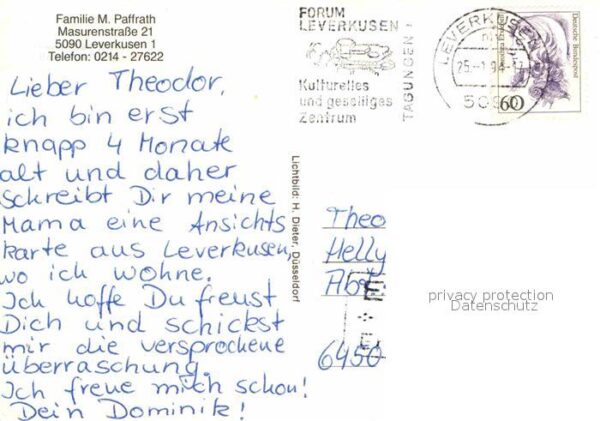 Familie M. Paffrath
Masurenstraße 21
5090 Leverkusen 1
Telefon: 0214 - 27622
FORUM
LEVERKUSEN
Kulturelles
und geselliges
Zentrum
TAGUNGEN
LEVERKUSEN
509
Deutsche Bundespost
60
Lieber Theodor,
ich bin erst
knapp 4 Monate
alt und daher
schreibt Dir meine
Mama eine Ansichts
karte aus Leverkusen,
wo ich wohne.
Ich hoffe Du freust
Dich und schickst
mir die versprochene
überraschung.
Ich freue mich schon!
Dein Dominik!
Lichtbild: H. Dieter, Düsseldorf
Theo
Helly
Abe
6450
privacy protection
Datenschutz